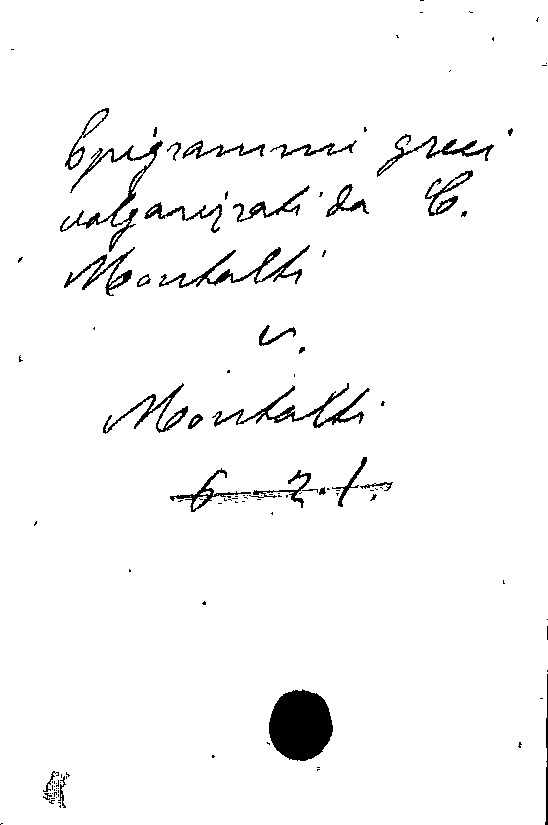 Epigrammi greci
volgarizzati da C.
Montalti
v.
Montalti
6.2.1.